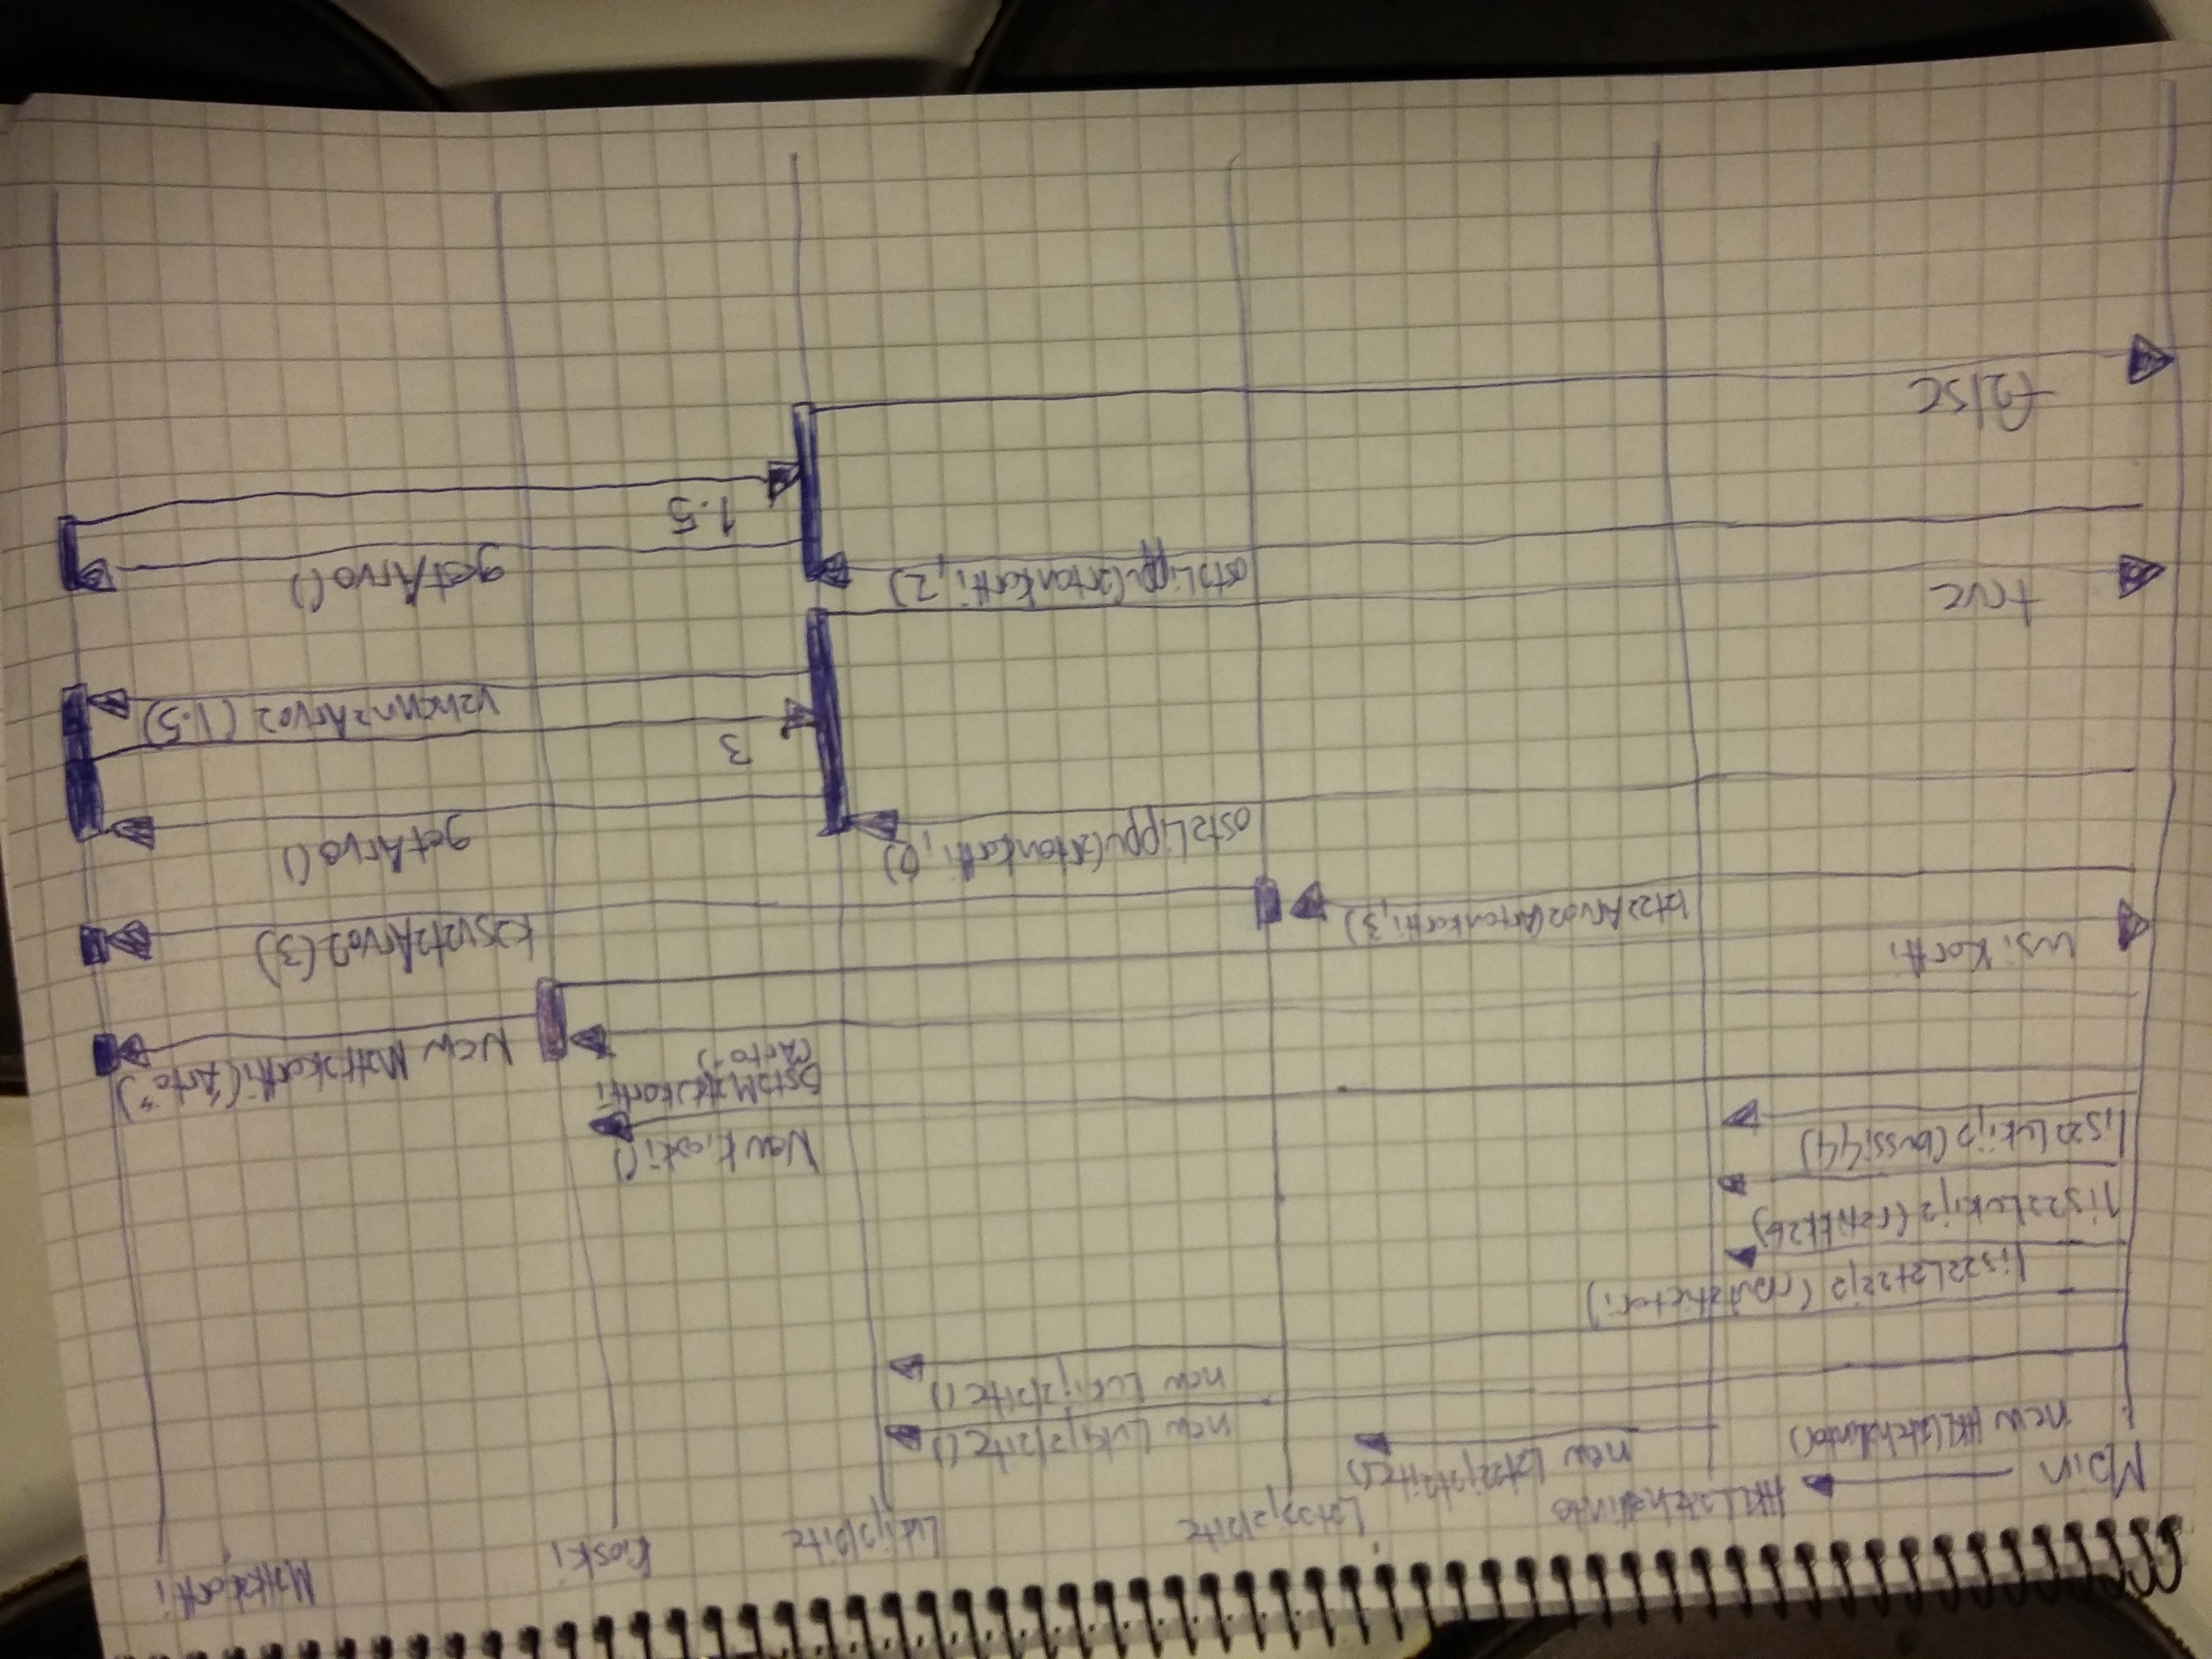 Main
HKLLaitehallinto
Lataajalaite
Lukijalaite
Kioski
Matkakortti
new HKLLaitehallinto()
new Lataajalaite()
new Lukijalaite()
new Lukijalaite()
lisaaLataaja (rautatietori)
lisaaLukija (ratikka6)
lisaaLukija (bussi44)
New Kioski()
OstaMatkakortti
(Arto")
New Matkakortti("Arto")
uusiKortti
lataaArvoa(Artonkortti, 3)
kasvataArvoa(3)
ostaLippu(artonKortti, 0)
getArvo()
3
vahennaArvoa (1.5)
true
ostaLippu(artonKortti, 2)
getArvo()
1.5
false